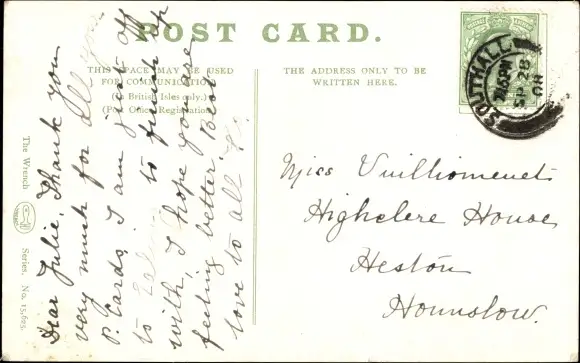 POST CARD.
THIS SPACE MAY BE USED
FOR COMMUNICATION
(In British Isles only.)
(Post Office Regulation).
THE ADDRESS ONLY TO BE
WRITTEN HERE.
Dear Julie, Thank you
very much for all your
P. Cards, I am just off
to to finish up
with, I hope you are
feeling better. Best
love to all
Miss Vuilliomenet
Highclere House
Heston
Hounslow.
SOUTHALL
SP 28
08
The Wrench Series. No. 15,625.